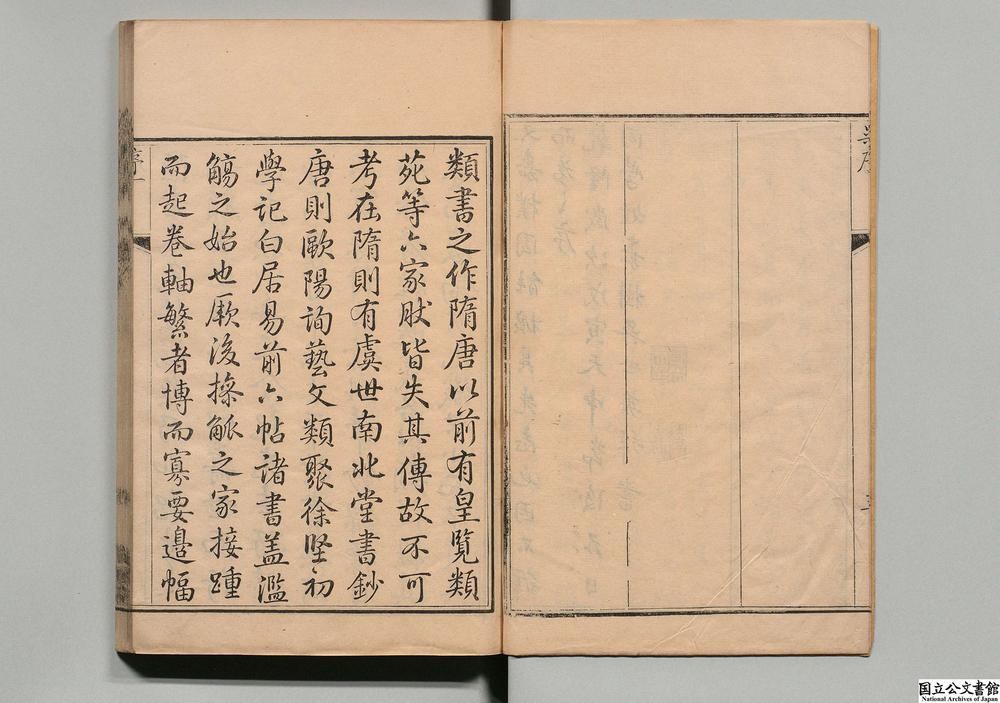 吳序
類書之作隋唐以前有皇覽類
苑等六家然皆失其傳故不可
考在隋則有虞世南北堂書鈔
唐則歐陽詢藝文類聚徐堅初
學記白居易前六帖諸書蓋濫
觴之始也厥後操觚之家接踵
而起卷軸繁者博而寡要邊幅
序一
国立公文書館
National Archives of Japan